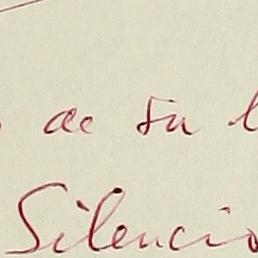 de su
Silencio